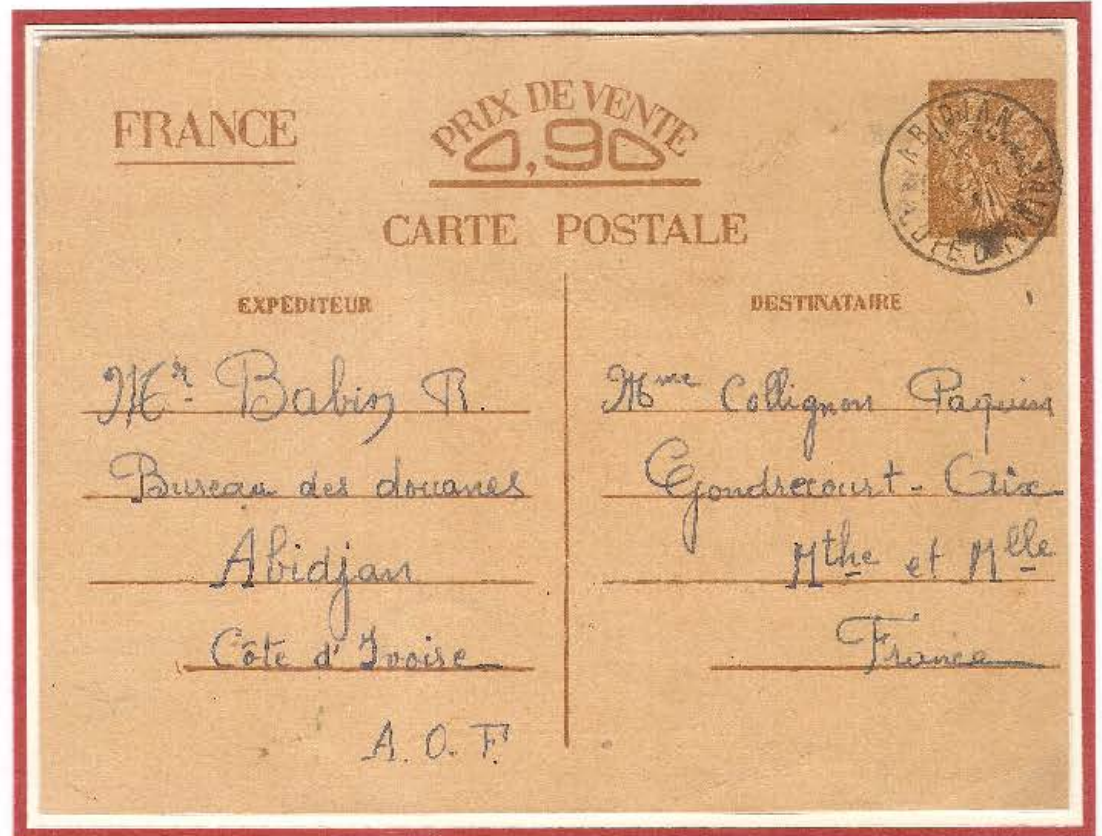 FRANCE
PRIX DE VENTE
0,90
CARTE POSTALE
ABIDJAN
EXPÉDITEUR
Mr. Babin R.
Bureau des douanes
Abidjan
Côte d'Ivoire
A.O.F
DESTINATAIRE
Mme Collignon Paquin
Gondrecourt - Aix
Mthe et Mlle
France